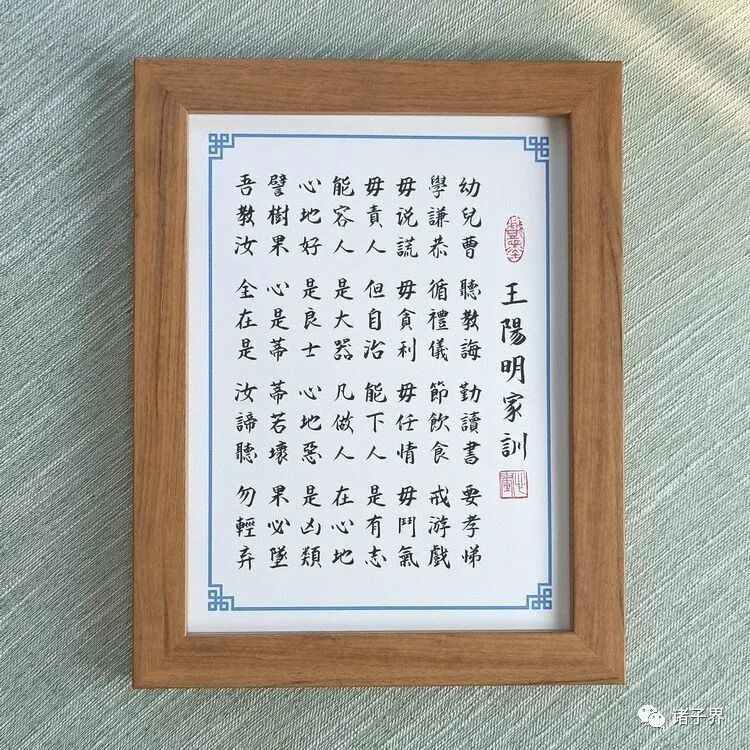 王陽明家訓
幼兒曹 聽教誨 勤讀書 要孝悌
學謙恭 循禮儀 節飲食 戒游戲
毋說謊 毋貪利 毋任情 毋鬥氣
毋責人 但自治 能下人 是有志
能容人 是大器 凡做人 在心地
心地好 是良士 心地惡 是凶類
譬樹果 心是蒂 蒂若壞 果必墜
吾教汝 全在是 汝諦聽 勿輕弃
诸子界